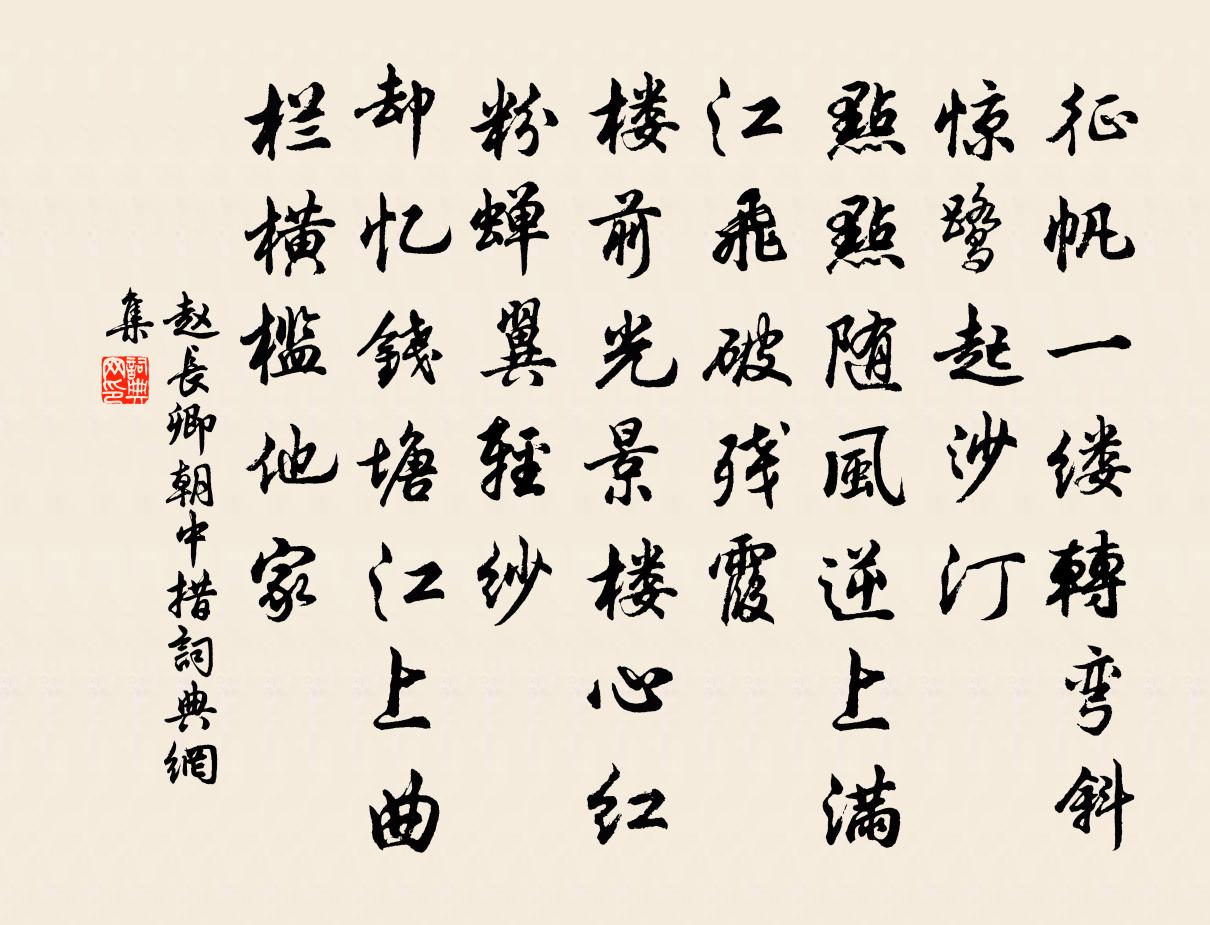 征帆一缕轉弯斜
惊鹭起沙汀
點點随風逆上满
江飛破残霞
楼前光景楼心红
粉蝉翼輕纱
却忆錢塘江上曲
栏横槛他家
赵長卿朝中措詞典網
集
詞典
网印